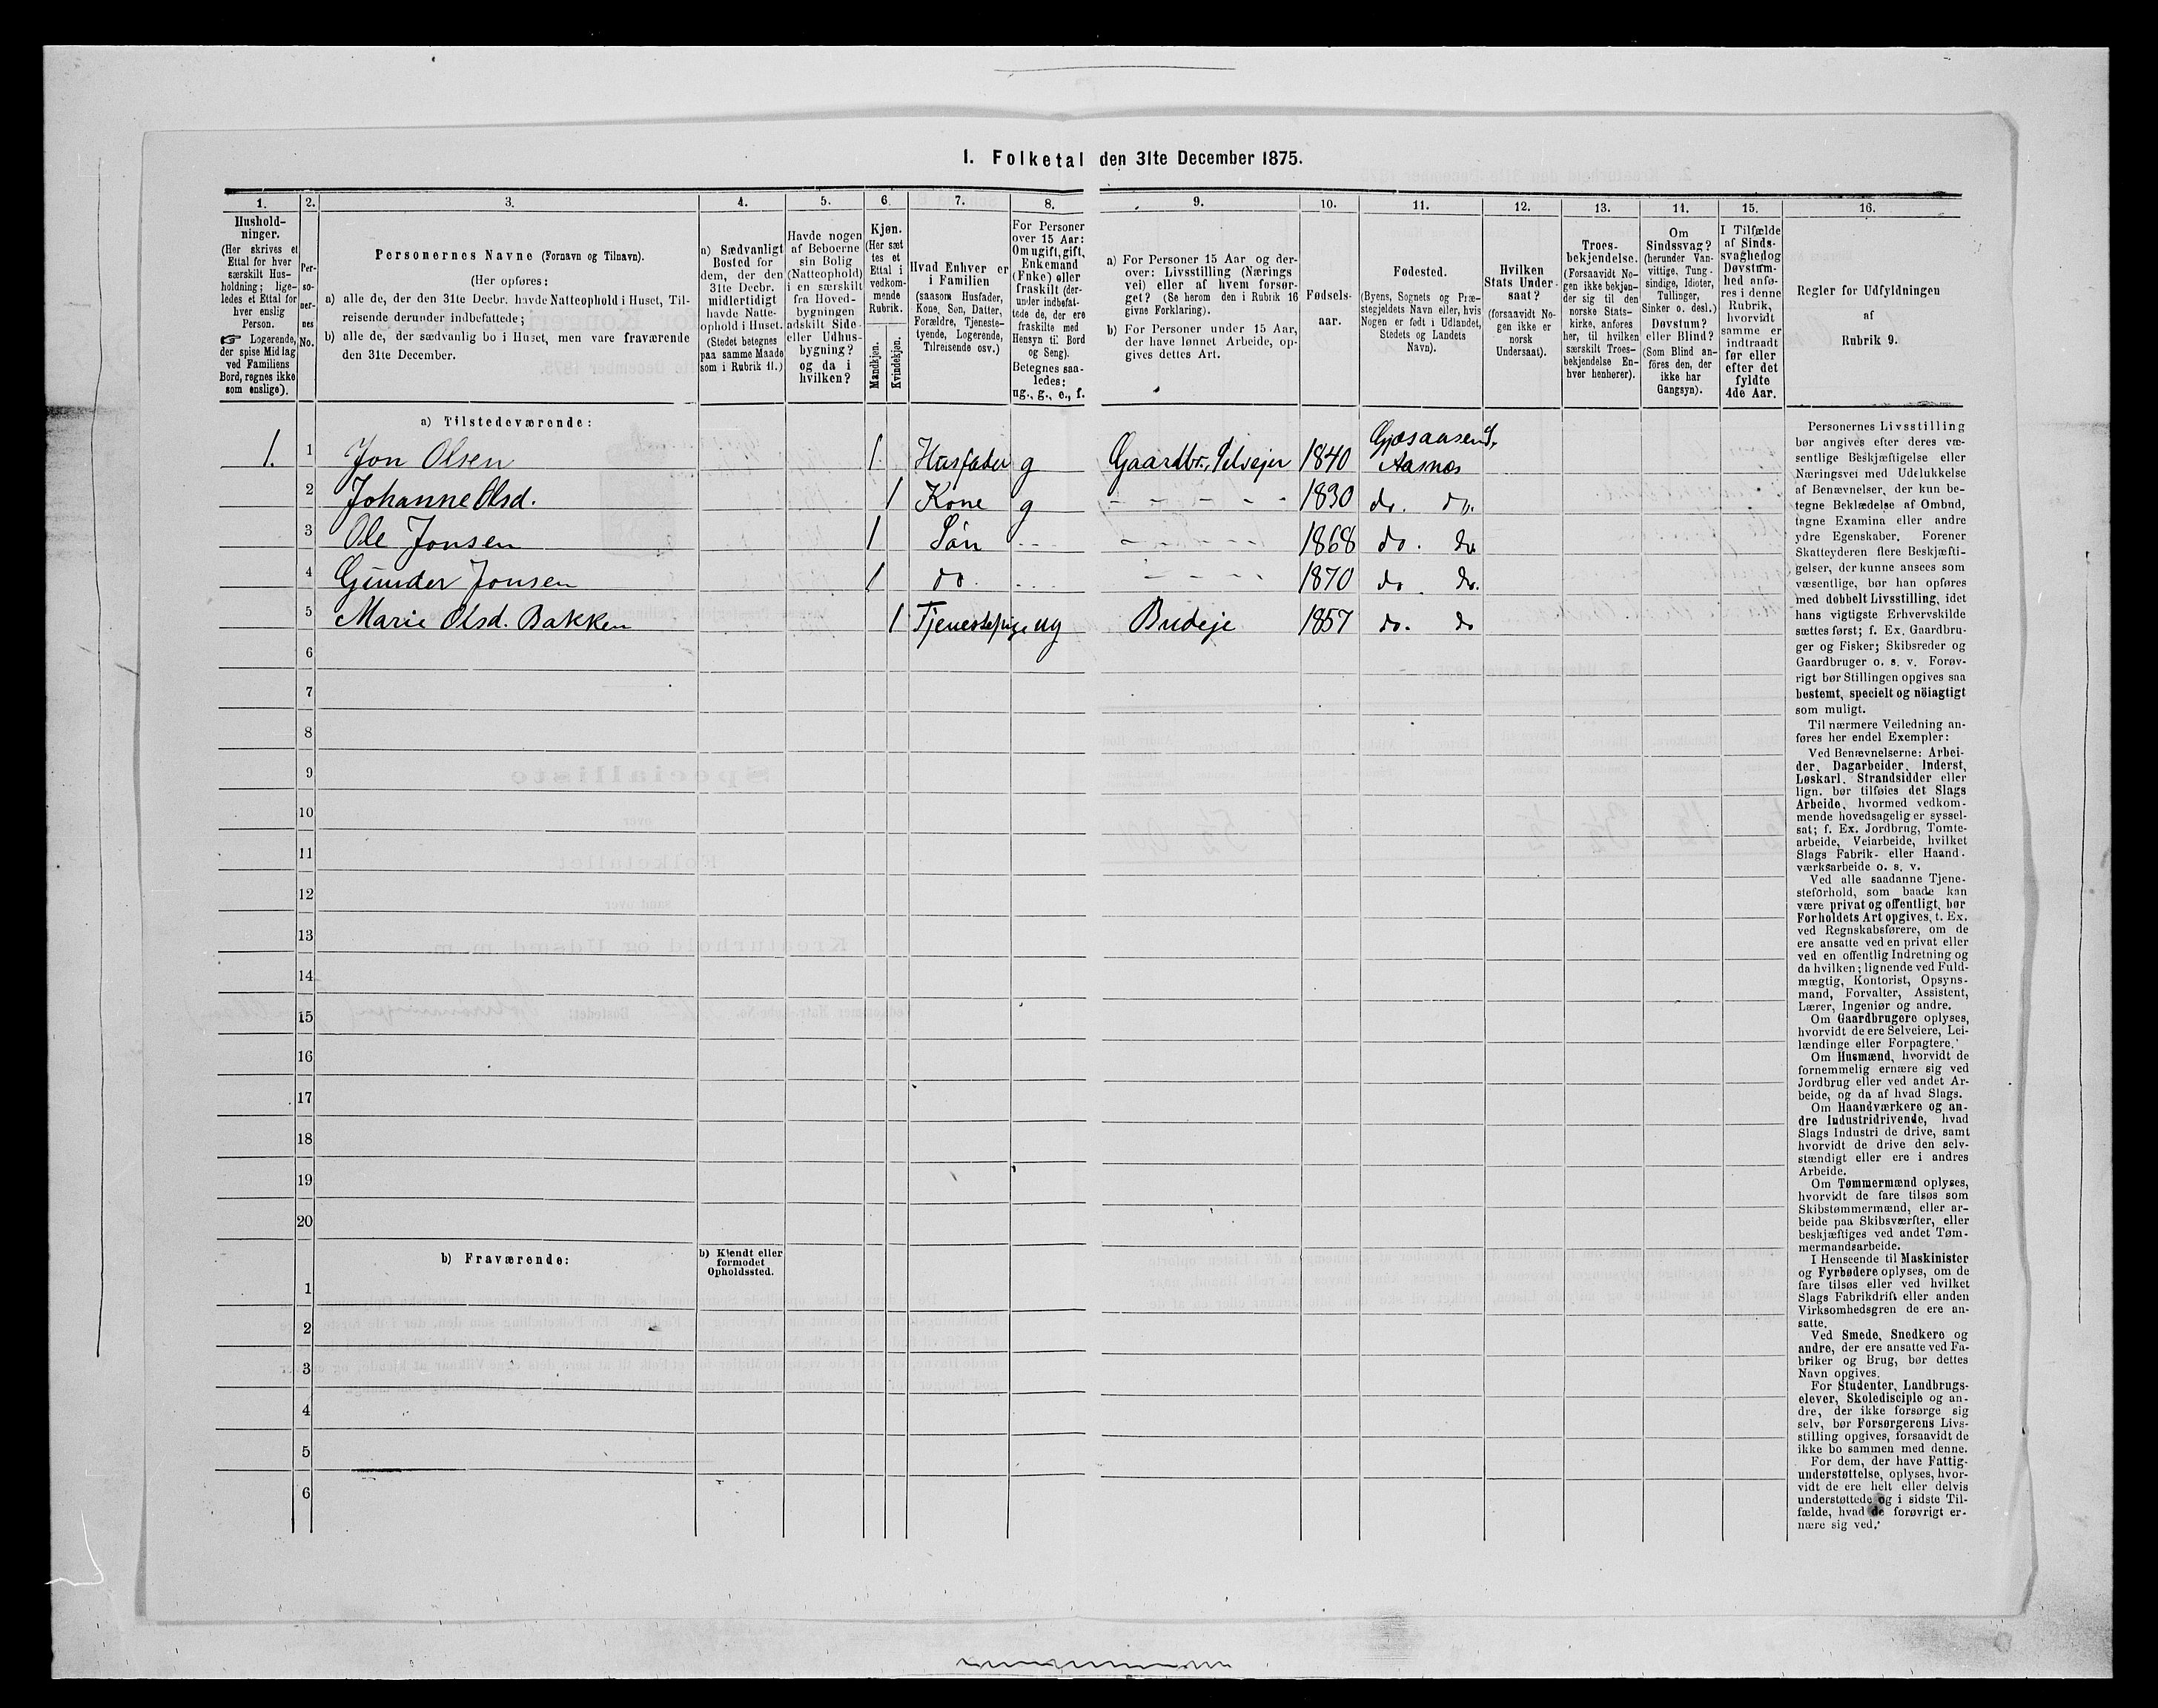 I. Folketal den 31te December 1875.
1.
Hushold-
ninger.
(Her skrives et
Ettal for hver
særskilt Hus-
holdning; lige-
ledes et Ettal for
hver enslig
Person.
☞ Logerende,
der spise Middag
ved Familiens
Bord, regnes ikke
som enslige).
2.
Per-
so-
ner-
nes
No.
3.
Personernes Navne (Fornavn og Tilnavn).
(Her opføres:
a) alle de, der den 31te Decbr. havde Natteophold i Huset, Til-
reisende derunder indbefattede;
b) alle de, der sædvanlig bo i Huset, men vare fraværende
den 31te December.
4.
a) Sædvanligt
Bosted for
dem, der den
31te Decbr.
midlertidigt
havde Natte-
ophold i Huset.
(Stedet betegnes
paa samme Maade
som i Rubrik 11.)
5.
Havde nogen
af Beboerne
sin Bolig
(Natteophold)
i en særskilt
fra Hoved-
bygningen
adskilt Side-
eller Udhus-
bygning?
og da i
hvilken?
6.
Kjøn.
(Her sæt
tes et
Ettal i
vedkom-
mende
Rubrik.
Mandkjøn.
Kvindekjøn.
7.
Hvad Enhver er
i Familien
(saasom Husfader,
Kone, Søn, Datter,
Forældre, Tjeneste-
tyende, Logerende,
Tilreisende osv.)
8.
For Personer
over 15 Aar:
Om ugift, gift,
Enkemand
(Enke) eller
fraskilt (der-
under indbefat-
tede de, der ere
fraskilte med
Hensyn til Bord
og Seng).
Betegnes saa-
ledes:
ug., g., e., f.
9.
a) For Personer 15 Aar og der-
over: Livsstilling (Nærings
vei) eller af hvem forsør-
get? (Se herom den i Rubrik 16
givne Forklaring).
b) For Personer under 15 Aar,
der have lønnet Arbeide, op-
gives dettes Art.
10.
Fødsels-
aar.
11.
Fødested.
(Byens, Sognets og Præ-
stegjeldets Navn eller, hvis
Nogen er født i Udlandet,
Stedets og Landets
Navn).
12.
Hvilken
Stats Under-
saat?
(forsaavidt No-
gen ikke er
norsk
Undersaat).
13.
Troes-
bekjendelse.
(Forsaavidt No-
gen ikke bekjen-
der sig til den
norske Stats-
kirke, anføres
her, til hvilken
særskilt Troes-
bekjendelse En-
hver henhører).
14.
Om
Sindssvag?
(herunder Van-
vittige, Tung-
sindige, Idioter,
Tullinger,
Sinker o. desl.)
Døvstum?
eller Blind?
(Som Blind an-
föres den, der
ikke har
Gangsyn).
15.
I Tilfælde
af Sinds-
svaghed og
Døvstum-
hed anfø-
res i denne
Rubrik,
hvorvidt
samme er
indtraadt
før eller
efter det
fyldte
4de Aar.
16.
Regler for Udfyldningen
af
Rubrik 9.
a) Tilstedeværende:
1. 1 Jon Olsen 1 Husfader g Gaardbr., Selvejer 1840 Gjøsaasen S, Aasnæs
2 Johanne Olsd. 1 Kone g - - - - - 1830 do. do.
3 Ole Jonsen 1 Søn - - - - - - - 1868 do. do.
4 Gunder Jonsen 1 do. - - - - - - - 1870 do. do.
5 Marie Olsd. Bakken 1 Tjenestepige ug Budeje 1857 do. do
6
7
8
9
10
11
12
13
14
15
16
17
18
19
20
b) Fraværende:
b) Kjendt eller
formodet
Opholdssted.
1
2
3
4
5
6
Personernes Livsstilling
bør angives efter deres væ-
sentlige Beskjæftigelse eller
Næringsvei med Udelukkelse
af Benævnelser, der kun be-
tegne Beklædelse af Ombud,
tagne Examina eller andre
ydre Egenskaber. Forener
Skatteyderen flere Beskjæfti-
gelser, der kunne ansees som
væsentlige, bør han opføres
med dobbelt Livsstilling, idet
hans vigtigste Erhvervskilde
sættes først; f. Ex. Gaardbru-
ger og Fisker; Skibsreder og
Gaardbruger o. s. v. Forøv-
rigt bør Stillingen opgives saa
bestemt, specielt og nöiagtigt
som muligt.
Til nærmere Veiledning an-
føres her endel Exempler:
Ved Benævnelserne: Arbei-
der, Dagarbeider, Inderst,
Løskarl, Strandsidder eller
lign. bør tilføies det Slags
Arbeide, hvormed vedkom-
mende hovedsagelig er syssel-
sat; f. Ex. Jordbrug, Tomte-
arbeide, Veiarbeide, hvilket
Slags Fabrik- eller Haand-
værksarbeide o. s. v.
Ved alle saadanne Tjene-
steforhold, som baade kan
være privat og offentligt, bør
Forholdets Art opgives, t. Ex.
ved Regnskabsførere, om de
ere ansatte ved en privat eller
ved en offentlig Indretning og
da hvilken; lignende ved Fuld-
mægtig, Kontorist, Opsyns-
mand, Forvalter, Assistent,
Lærer, Ingeniør og andre.
Om Gaardbrugere oplyses,
hvorvidt de ere Selveiere, Lei-
lændinge eller Forpagtere.
Om Husmænd, hvorvidt de
fornemmelig ernære sig ved
Jordbrug eller ved andet Ar-
beide, og da af hvad Slags.
Om Haandværkere og an-
dre Industridrivende, hvad
Slags Industri de drive, samt
hvorvidt de drive den selv-
stændigt eller ere i andres
Arbeide.
Om Tømmermænd oplyses,
hvorvidt de fare tilsøs som
Skibstømmermænd, eller ar-
beide paa Skibsværfter, eller
beskjæftiges ved andet Tøm-
mermandsarbeide.
I Henseende til Maskinister
og Fyrbødere oplyses, om de
fare tilsøs eller ved hvilket
Slags Fabrikdrift eller anden
Virksomhedsgren de ere an-
satte.
Ved Smede, Snedkere og
andre, der ere ansatte ved Fa-
briker og Brug, bør dettes
Navn opgives.
For Studenter, Landbrugs-
elever, Skoledisciple og an-
dre, der ikke forsørge sig
selv, bør Forsørgerens Livs-
stilling opgives, forsaavidt de
ikke bo sammen med denne.
For dem, der have Fattig-
understøttelse, oplyses, hvor-
vidt de ere helt eller delvis
understøttede og i sidste Til-
fælde, hvad de forøvrigt er-
nære sig ved.